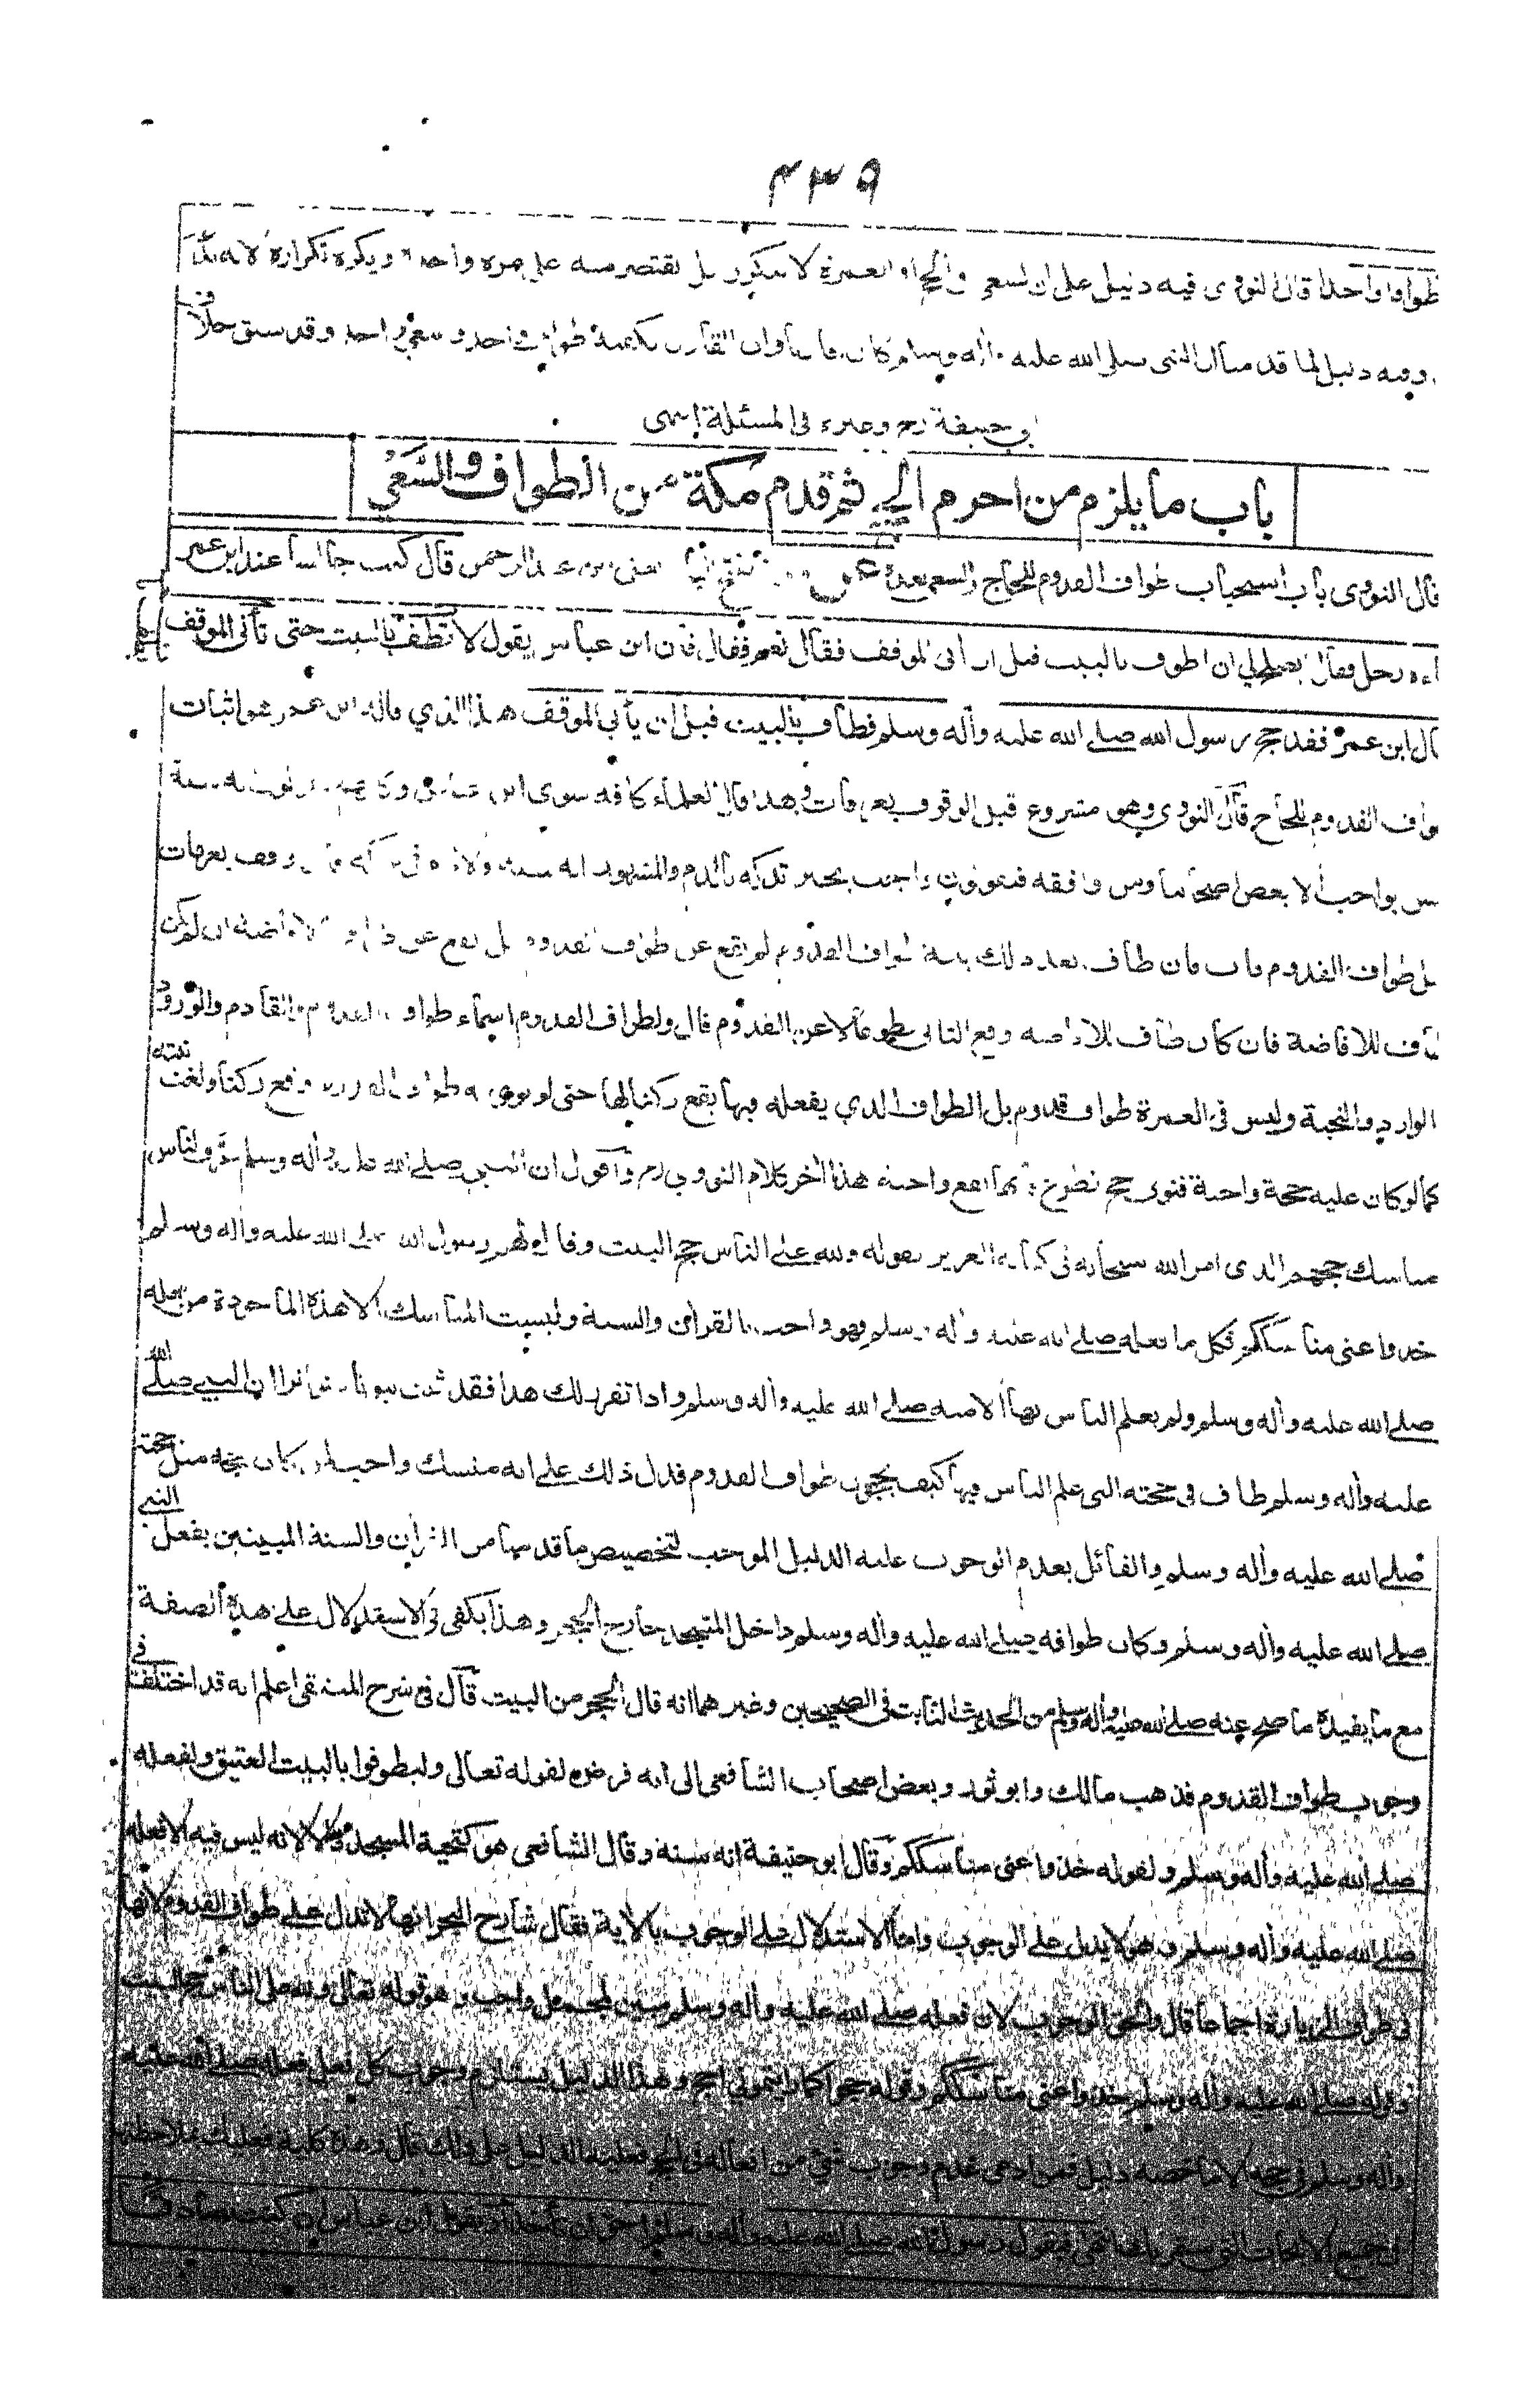 ٤٣٩
طوافا واحدا قال النووي فيه دليل على ان السعي في الحج او العمرة لا يتكرر بل يقتصر منه على مرة واحدة ويكره تكراره لانه بدعة
وفيه دليل لما قدمناه ان النبي صلى الله عليه وآله وسلم كان قارنا وان القارن يكفيه طواف واحد وسعي واحد وقد سبق خلاف
ابي حنيفة رح وغيره في المسئلة انتهى
باب ما يلزم من احرم بالحج ثم قدم مكة من الطواف والسعي
قال النووي باب استحباب طواف القدوم للحاج والسعي بعده عن بن عبد الرحمن قال كنت جالسا عند ابن عمر
فجاءه رجل فقال ايصلح لي ان اطوف بالبيت قبل ان آتي الموقف فقال نعم فقال فان ابن عباس يقول لا تطف بالبيت حتى تأتي الموقف
فقال ابن عمر فقد حج رسول الله صلے الله عليه وآله وسلم فطاف بالبيت قبل ان يأتي الموقف هذا الذي قاله ابن عمر هو اثبات
طواف القدوم للحاج قال النووي وهو مشروع قبل الوقوف بعرفات وبهذا قال العلماء كافة سوى ابن عباس سنة
ليس بواجب الا بعض اصحابنا ومن وافقه فيقولون واجب يجبر تركه بالدم والمشهور انه سنة وقف بعرفات
قبل طواف القدوم فات فان طاف بعد ذلك بنية طواف القدوم لم يقع عن طواف القدوم بل يقع عن طواف الافاضة ان لم يكن
طاف للافاضة فان كان طاف للافاضة وقع الثاني تطوعا لا عن القدوم قال ولطواف القدوم اسماء طواف القدوم والقادم والورود
الوارد والتحية وليس في العمرة طواف قدوم بل الطواف الذي يفعله فيها يقع ركنا لها حتى لو نوى به طواف القدوم وقع ركنا ولغت نيته
كما لو كان عليه حجة واجبة فنوى حج تطوع فانها تقع واجبة هذا آخر كلام النووي رح وأقول ان النبي صلے الله عليه وآله وسلم للناس
مناسك حجهم الذي امر الله سبحانه في كتابه العزيز بقوله ولله على الناس حج البيت وقال لهم رسول الله صلے الله عليه وآله وسلم
خذوا عني مناسككم فكل ما فعله صلے الله عليه وآله وسلم فهو واجب بالقرآن والسنة وليست المناسك الا هذه المأخوذة من فعله
صلے الله عليه وآله وسلم ولم يعلم الناس بها الا منه صلے الله عليه وآله وسلم واذا تقرر لك هذا فقد ثبت ثبوتا متواترا ان النبي صلے الله
عليه وآله وسلم طاف في حجته التي علم الناس فيها كيف يحجون طواف القدوم فدل ذلك على انه منسك واجب لمن كان حجه مثل حجته
صلے الله عليه وآله وسلم والقائل بعدم الوجوب عليه الدليل الموجب لتخصيص ما قدمنا من القرآن والسنة المبينين بفعل النبي
صلے الله عليه وآله وسلم وكان طوافه صلے الله عليه وآله وسلم داخل المسجد خارج الحجر وهذا يكفي في الاستدلال على هذه الصفة
مع ما يفيده ما صح عنه صلے الله عليه وآله وسلم من الحديث الثابت في الصحيحين وغيرهما انه قال الحجر من البيت قال في شرح المنتقى اعلم انه قد اختلف في
وجوب طواف القدوم فذهب مالك وابو ثور وبعض اصحاب الشافعي الى انه فرض لقوله تعالى وليطوفوا بالبيت العتيق ولفعله
صلے الله عليه وآله وسلم ولقوله خذوا عني مناسككم وقال ابو حنيفة انه سنة وقال الشافعي هو كتحية المسجد قالا لانه ليس فيه الا فعله
صلے الله عليه وآله وسلم وهو لا يدل على الوجوب واما الاستدلال على الوجوب بالآية فقال شارح البحر انها لا تدل على طواف القدوم لانها
في طواف الزيارة اجماعا قال والحق الوجوب لان فعله صلے الله عليه وآله وسلم مبين لمجمل واجب وهو قوله تعالى ولله على الناس حج البيت
وقوله صلے الله عليه وآله وسلم خذوا عني مناسككم وقوله حجوا كما رأيتموني احج وهذا الدليل يستلزم وجوب كل فعل فعله صلے الله عليه
وآله وسلم في حجه الا ما خصه دليل فمن ادعى عدم وجوب شيء من افعاله في الحج فعليه الدليل على ذلك قال وهذه كلية فعليك بملاحظتها
في جميع الابحاث التي ستمر بك فبقول رسول الله صلے الله عليه وآله وسلم احق ان تأخذ او بقول ابن عباس ان كنت صادقا